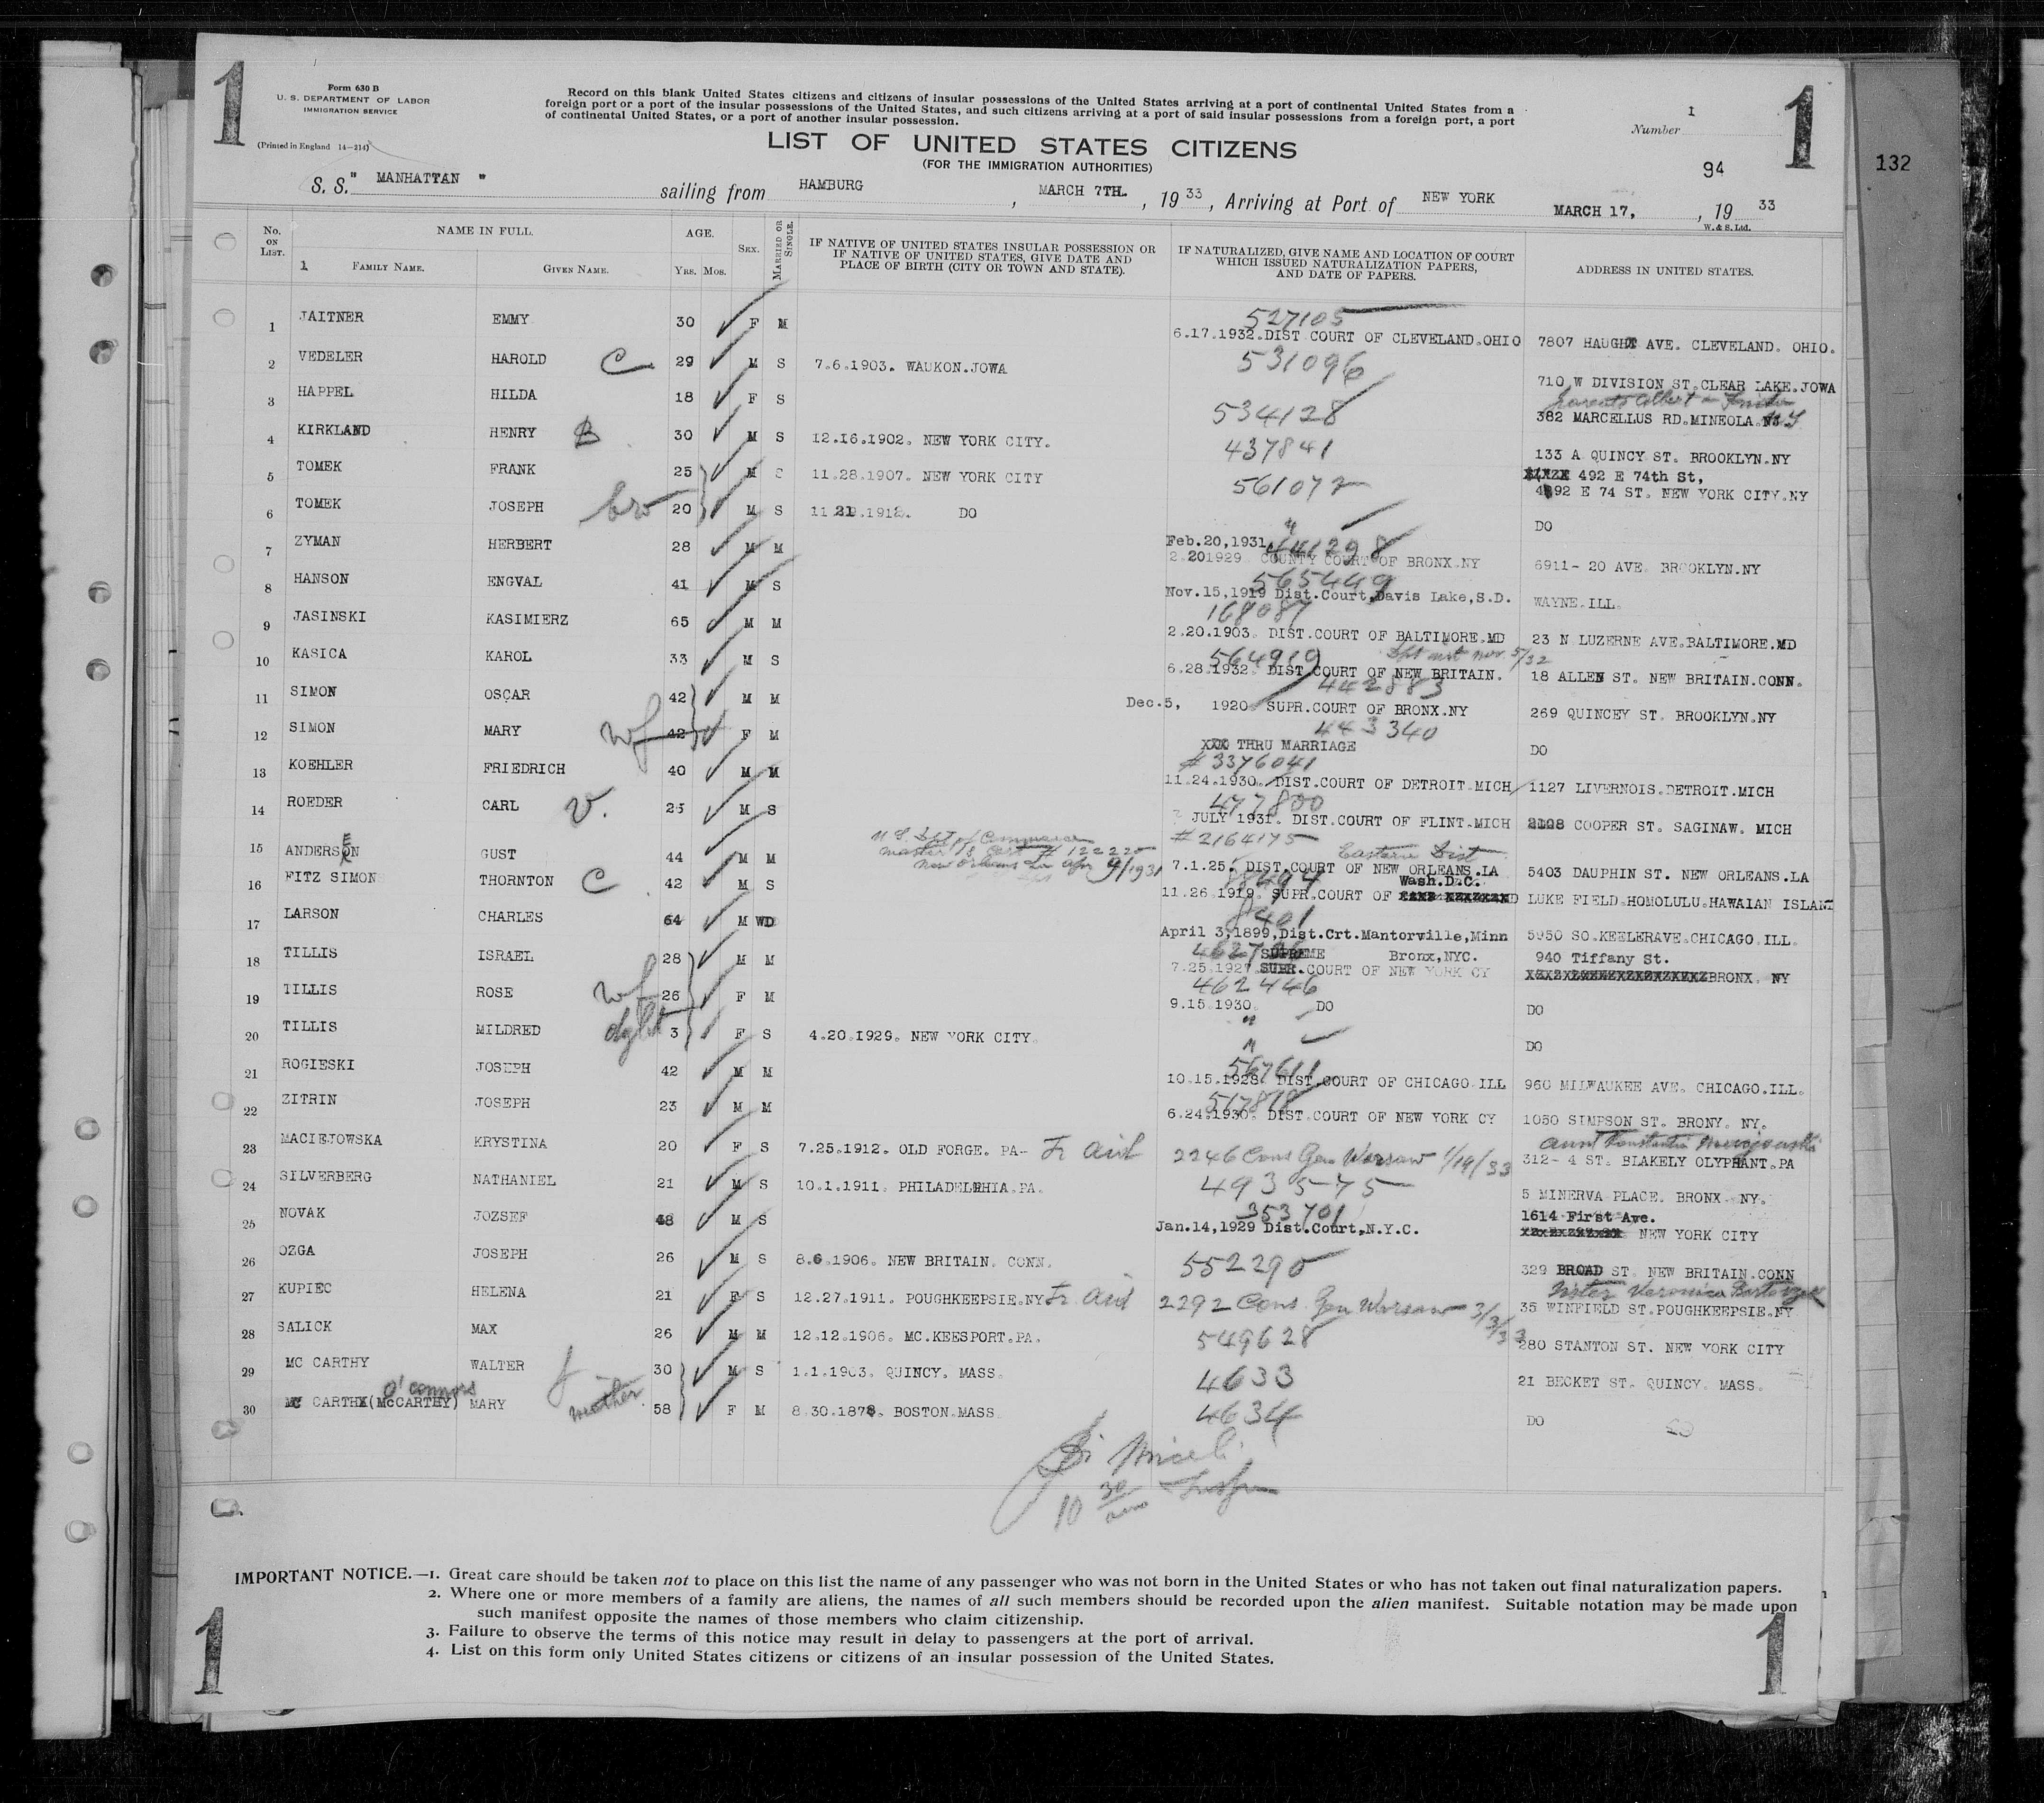 1
Form 630 B
U. S. DEPARTMENT OF LABOR
IMMIGRATION SERVICE
(Printed in England 14—214)
Record on this blank United States citizens and citizens of insular possessions of the United States arriving at a port of continental United States from a
foreign port or a port of the insular possessions of the United States, and such citizens arriving at a port of said insular possessions from a foreign port, a port
of continental United States, or a port of another insular possession.
Number 1
1
LIST OF UNITED STATES CITIZENS
(FOR THE IMMIGRATION AUTHORITIES)
94
132
S. S. " MANHATTAN " sailing from HAMBURG, MARCH 7TH., 1933, Arriving at Port of NEW YORK MARCH 17, , 1933
W. & S. Ltd.
No. ON LIST. NAME IN FULL. AGE. SEX. MARRIED OR SINGLE. IF NATIVE OF UNITED STATES INSULAR POSSESSION OR IF NATIVE OF UNITED STATES, GIVE DATE AND PLACE OF BIRTH (CITY OR TOWN AND STATE). IF NATURALIZED, GIVE NAME AND LOCATION OF COURT WHICH ISSUED NATURALIZATION PAPERS, AND DATE OF PAPERS. ADDRESS IN UNITED STATES.
1 FAMILY NAME. GIVEN NAME. YRS. MOS.
1 JAITNER EMMY 30 F M 527105 6.17.1932.DIST COURT OF CLEVELAND.OHIO 7807 HAUGHT AVE. CLEVELAND. OHIO.
2 VEDELER HAROLD C 29 M S 7.6.1903. WAUKON.JOWA 531096 710 W DIVISION ST.CLEAR LAKE.JOWA
3 HAPPEL HILDA 18 F S 534128 parents Albert 382 MARCELLUS RD.MINEOLA.NY
4 KIRKLAND HENRY B 30 M S 12.16.1902. NEW YORK CITY. 437841 133 A QUINCY ST. BROOKLYN.NY
5 TOMEK FRANK 25 M S 11.28.1907. NEW YORK CITY 561072 492 E 74th St, 492 E 74 ST. NEW YORK CITY.NY
6 TOMEK JOSEPH bro 20 M S 11.21.1912. DO " DO
7 ZYMAN HERBERT 28 M M Feb.20,1931 441298 2.201929 COUNTY COURT OF BRONX.NY 6911- 20 AVE. BROOKLYN.NY
8 HANSON ENGVAL 41 M S 565449 Nov.15,1919 Dist.Court,Davis Lake,S.D. WAYNE.ILL.
9 JASINSKI KASIMIERZ 65 M M 168087 2.20.1903. DIST.COURT OF BALTIMORE.MD 23 N LUZERNE AVE.BALTIMORE.MD
10 KASICA KAROL 33 M S 564919 nov. 5/32 6.28.1932. DIST.COURT OF NEW BRITAIN. 18 ALLEN ST. NEW BRITAIN.CONN.
11 SIMON OSCAR 42 M M 442883 Dec.5, 1920. SUPR.COURT OF BRONX.NY 269 QUINCEY ST. BROOKLYN.NY
12 SIMON MARY wf 42 F M 443340 XXX THRU MARRIAGE DO
13 KOEHLER FRIEDRICH 40 M M # 3376041 11.24.1930. DIST.COURT OF DETROIT.MICH 1127 LIVERNOIS.DETROIT.MICH
14 ROEDER CARL V. 25 M S 477800 JULY 1931. DIST.COURT OF FLINT.MICH COOPER ST. SAGINAW. MICH
15 ANDERSEN GUST 44 M M U S Dept of Commerce master's cert # 122225 New Orleans La apr 9/1931 # 2164175 Eastern Dist 7.1.25. DIST.COURT OF NEW ORLEANS.LA 5403 DAUPHIN ST. NEW ORLEANS.LA
16 FITZ SIMONS THORNTON C 42 M S 11.26.1919. SUPR.COURT OF Wash.D.C. LUKE FIELD.HOMOLULU.HAWAIAN ISLAND
17 LARSON CHARLES 64 M WD 8401 April 3,1899,Dist.Crt.Mantorville,Minn 5950 SO.KEELERAVE.CHICAGO ILL.
18 TILLIS ISRAEL 28 M M SUPREME Bronx,NYC. 7.25.1927 SUPR.COURT OF NEW YORK CY 940 Tiffany St. BRONX. NY
19 TILLIS ROSE wf 26 F M 462446 9.15.1930. DO DO
20 TILLIS MILDRED dght 3 F S 4.20.1929. NEW YORK CITY. " DO
21 ROGIESKI JOSEPH 42 M M 567611 10.15.1928. DIST.COURT OF CHICAGO.ILL 960 MILWAUKEE AVE. CHICAGO.ILL.
22 ZITRIN JOSEPH 23 M M 517818 6.24.1930. DIST.COURT OF NEW YORK CY 1050 SIMPSON ST. BRONY. NY.
23 MACIEJOWSKA KRYSTINA 20 F S 7.25.1912. OLD FORGE. PA- 2246 Cons Gen Warsaw 1/19/33 aunt 312- 4 ST. BLAKELY OLYPHANT.PA
24 SILVERBERG NATHANIEL 21 M S 10.1.1911. PHILADELPHIA.PA. 493575 5 MINERVA PLACE. BRONX. NY.
25 NOVAK JOZSEF 48 M S 353701 Jan.14,1929 Dist.Court,N.Y.C. 1614 First Ave. NEW YORK CITY
26 OZGA JOSEPH 26 M S 8.6.1906. NEW BRITAIN. CONN. 552290 329 BROAD ST. NEW BRITAIN.CONN
27 KUPIEC HELENA 21 F S 12.27.1911. POUGHKEEPSIE.NY 2292 Cons Gen Warsaw 3/3/33 Sister Veronica 35 WINFIELD ST.POUGHKEEPSIE.NY
28 SALICK MAX 26 M M 12.12.1906. MC.KEESPORT.PA. 549628 280 STANTON ST. NEW YORK CITY
29 MC CARTHY WALTER J 30 M S 1.1.1903. QUINCY. MASS. 4633 21 BECKET ST. QUINCY. MASS.
30 MC CARTHX(McCARTHY) O'connors MARY mother 58 F M 8.30.1878. BOSTON.MASS 4634 DO
10 30
IMPORTANT NOTICE.—1. Great care should be taken not to place on this list the name of any passenger who was not born in the United States or who has not taken out final naturalization papers.
2. Where one or more members of a family are aliens, the names of all such members should be recorded upon the alien manifest. Suitable notation may be made upon
such manifest opposite the names of those members who claim citizenship.
3. Failure to observe the terms of this notice may result in delay to passengers at the port of arrival.
4. List on this form only United States citizens or citizens of an insular possession of the United States.
1
1